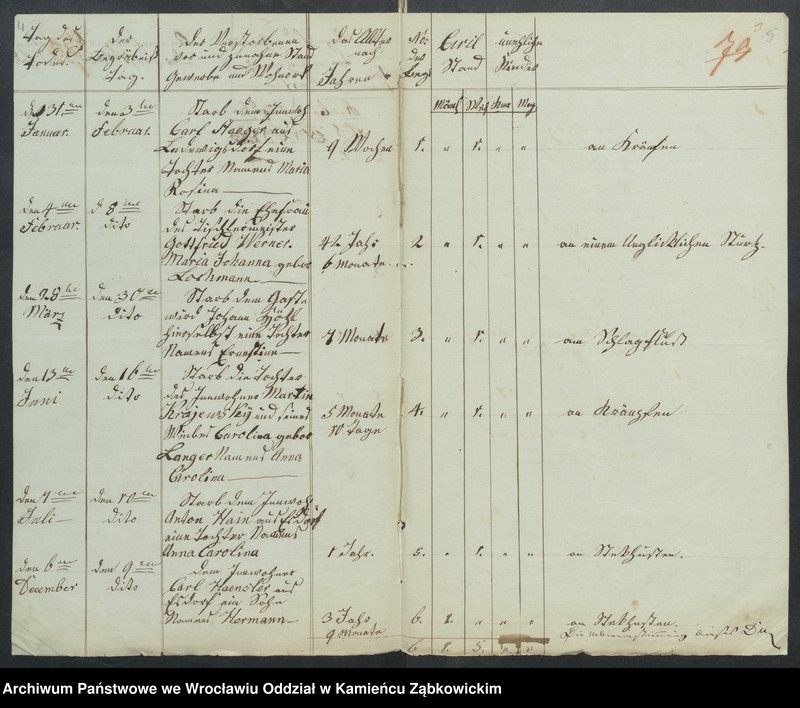 Tag des
Todes.
der
Begräbniß
Tag.
Des Verstorbenen
Vor und Zunahme Stand
Gewerbe und Wohnort
Das Alter
nach
Jahren
No:
der
Civil
Stand
uneheliche
Kinder
79
Män̄l
Wei
Kna
Mag
den 31ten
Januar.
den 3te
Februar.
Starb dem Innwoh
Carl Haeger aus
Ludwigsdorf eine
Tochter Namens Maria
Rosina
9 Wochen
1.
"
1.
"
"
an Krämfen
den 4te
Februar.
d 8te
dito
Starb die Ehefrau
des Tischlermeister
Gottfried Werner.
Maria Johanna gebor
Lochmann
42 Jahr
6 Monate
2
"
1.
"
"
an einem Unglücklichen Sturtz.
den 28te
März
den 30te
dito
Starb dem Gast-
wird Johann
hierselbst eine Tochter
Namens Ernestine
7 Monate
3.
"
1.
"
"
am Schlagfluß
den 13te
Juni
den 16te
dito
Starb die Tochter
des Innwohner Martin
Krajewsky und seines
Weibes Carolina gebor
Langer Namens Anna
Carolina
5 Monate
10 Tage
4.
"
1.
"
"
an Krämpfen
den 7te
Juli
den 10te
dito
Starb dem Innwoh
Anton Hain aus Esdorf
eine Tochter Namens
Anna Carolina
1 Jahr.
5.
"
1.
"
"
an Stekhusten.
den 6te
December
den 9te
dito
Dem Innwohner
Carl Haensler aus
Esdorf ein Sohn
Namens Hermann
3 Jahr
9 Monate
6.
1.
"
"
"
an Stekhusten.
6.
1.
5.
Archiwum Państwowe we Wrocławiu Oddział w Kamieńcu Ząbkowickim